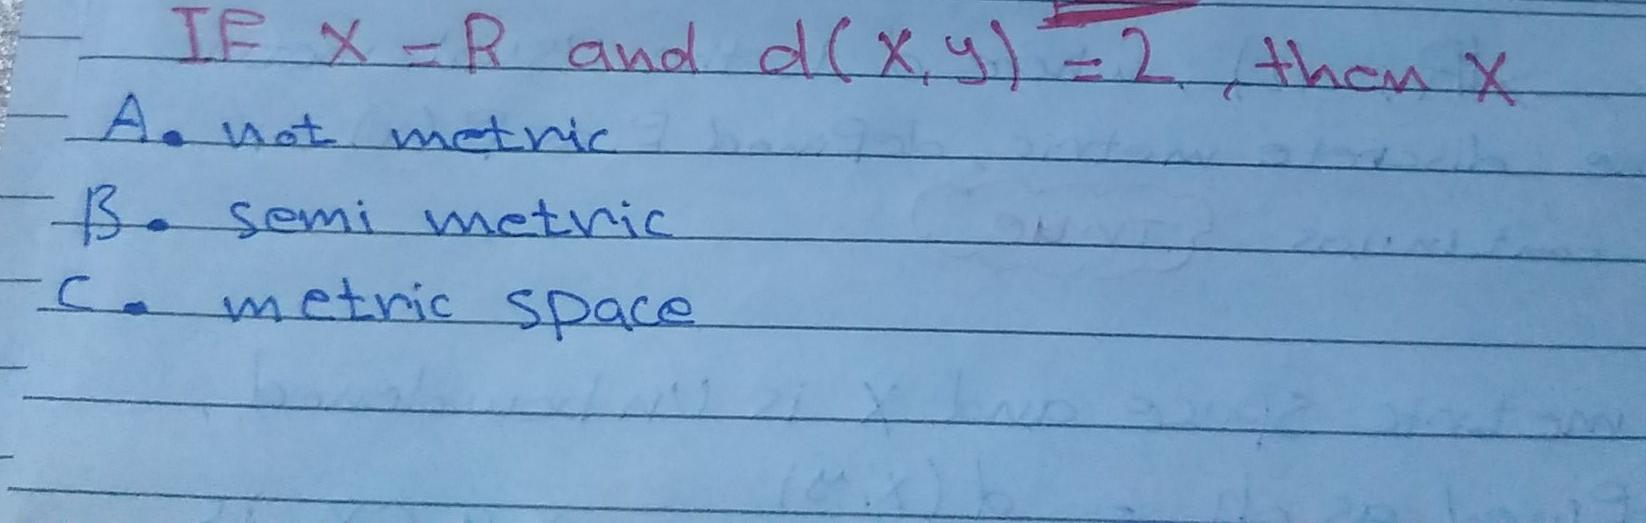 IF X = R and d(x,y) = 2, then X
A. not metric
B. semi metric
C. metric space